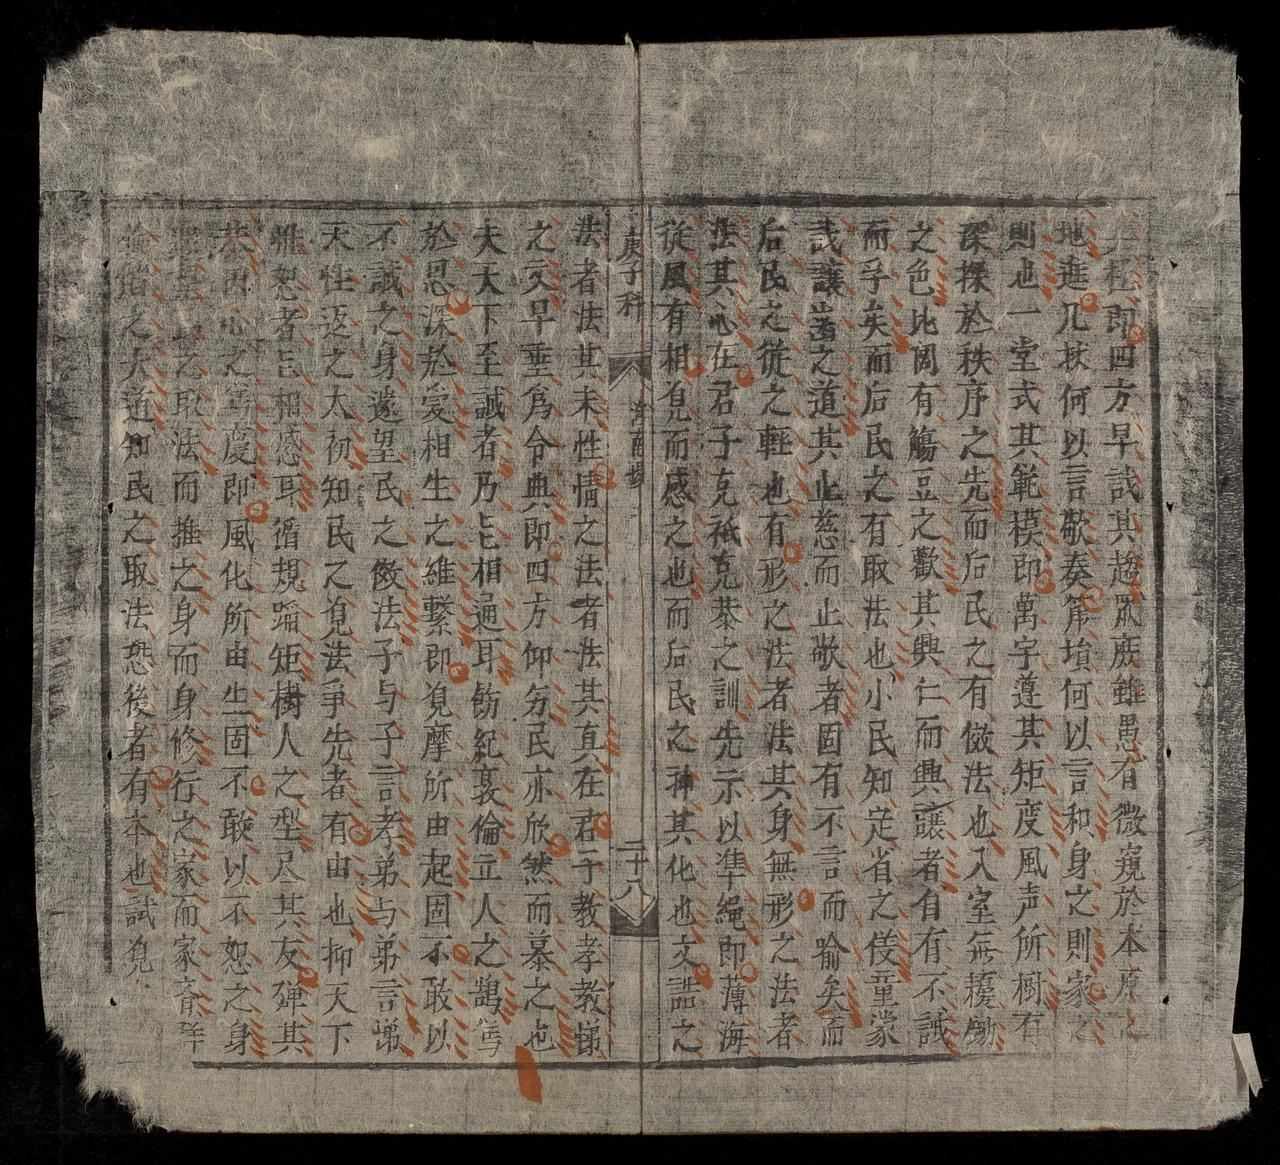 即四方早試其趨眾庶雖愚有微窺於本原
地進几杖何以言敬奏箎塤何以言和身之則家之
則也一堂式其範模即萬宇遵其矩度風声所樹有
深探於秩序之先而后民之有傚法也入室無
之色比閭有觴豆之歡其與仁而興讓者有有不誠
而孚矣而后民之有取法也小民知定省之後童蒙
讓之道其止慈而止敬者固有不言而喻矣而
后民之從之輕也有形之法者法其身無形之法者
法其心在君子克祗克恭之訓先示以準繩即薄海
從風有相覓而感之也而后民之神其化也文誥之
庚子科
二十八
法者法其末性情之法者法其真在君子教孝教悌
之文早垂為令典即四方仰多民亦欣然而慕之也
夫天下至誠者乃㠯相通耳飭紀敦倫立人之鵠焉
於恩深於愛相生之維繫即覓摩所由起固不敢以
不誠之身遠望民之傚法子与子言孝弟与弟言悌
天性返之太初知民之覓法爭先者有由也抑天下
惟恕者㠯相感耳循規蹈矩樹人之型尽其友殫其
恭忠心之為度即風化所由生固不敢以不恕之身
之取法而推之身而身修行之家而家齊
之大道知民之取法恐後者有本也試覓